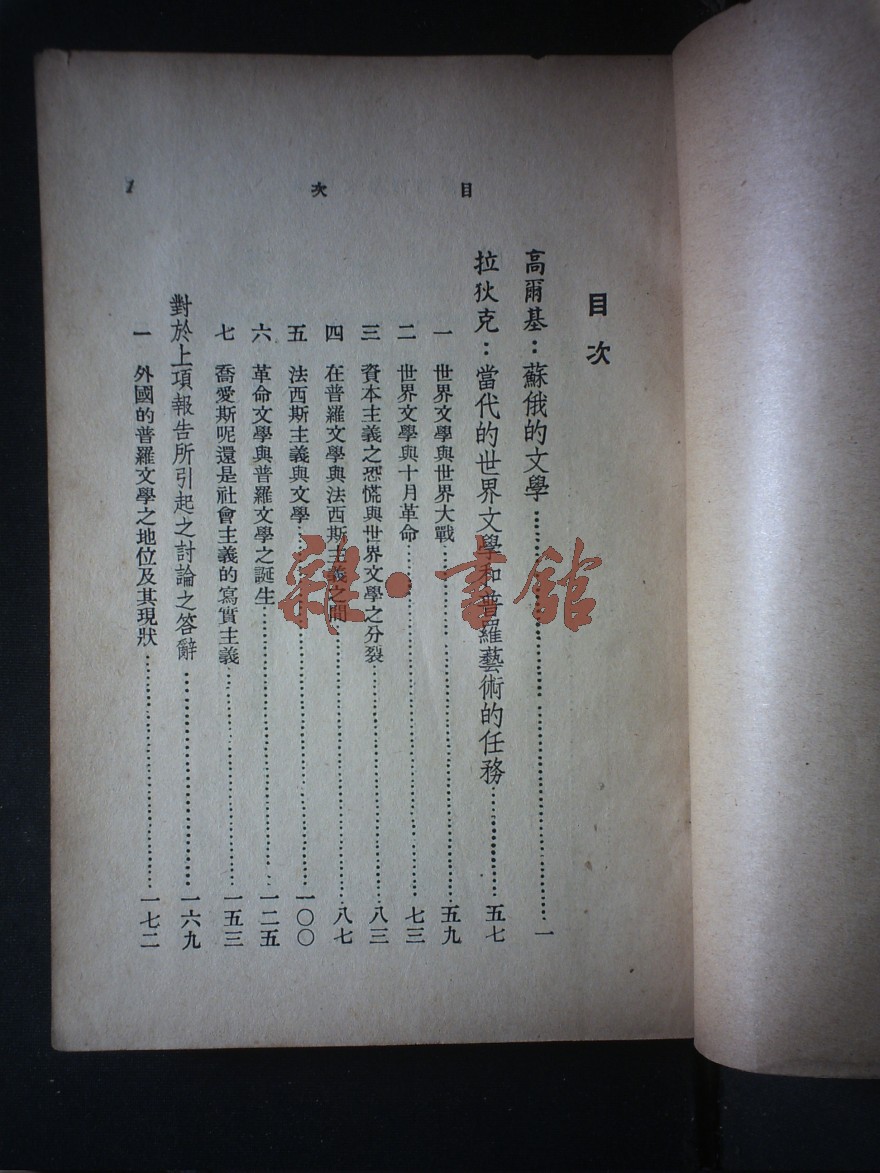 目次
1
目次
高爾基：蘇俄的文學……一
拉狄克：當代的世界文學和普羅藝術的任務……五七
一 世界文學與世界大戰……五九
二 世界文學與十月革命……七三
三 資本主義之恐慌與世界文學之分裂……八三
四 在普羅文學與法西斯主義之間……八七
五 法西斯主義與文學……一〇〇
六 革命文學與普羅文學之誕生……一二五
七 喬愛斯呢還是社會主義的寫實主義……一五三
對於上項報告所引起之討論之答辭……一六九
一 外國的普羅文學之地位及其現狀……一七二
雜·書館